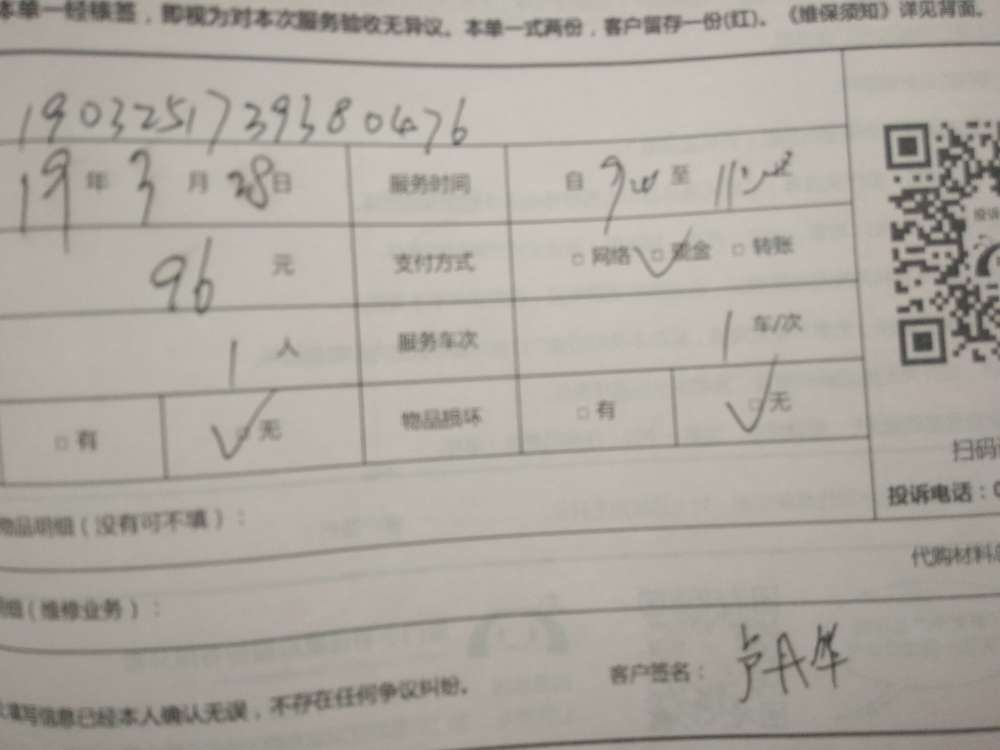 本单一经核签，即视为对本次服务验收无异议。本单一式两份，客户留存一份(红)。《维保须知》详见背面。
1903251739380476
19年3月28日 服务时间 自 至
96元 支付方式 □网络 □现金 □转账
1人 服务车次 1车/次
□有 □无 物品损坏 □有 □无
扫码
投诉电话：0
物品明细（没有可不填）：
代购材料
明细（维修业务）：
填写信息已经本人确认无误，不存在任何争议纠纷。 客户签名：卢丹华